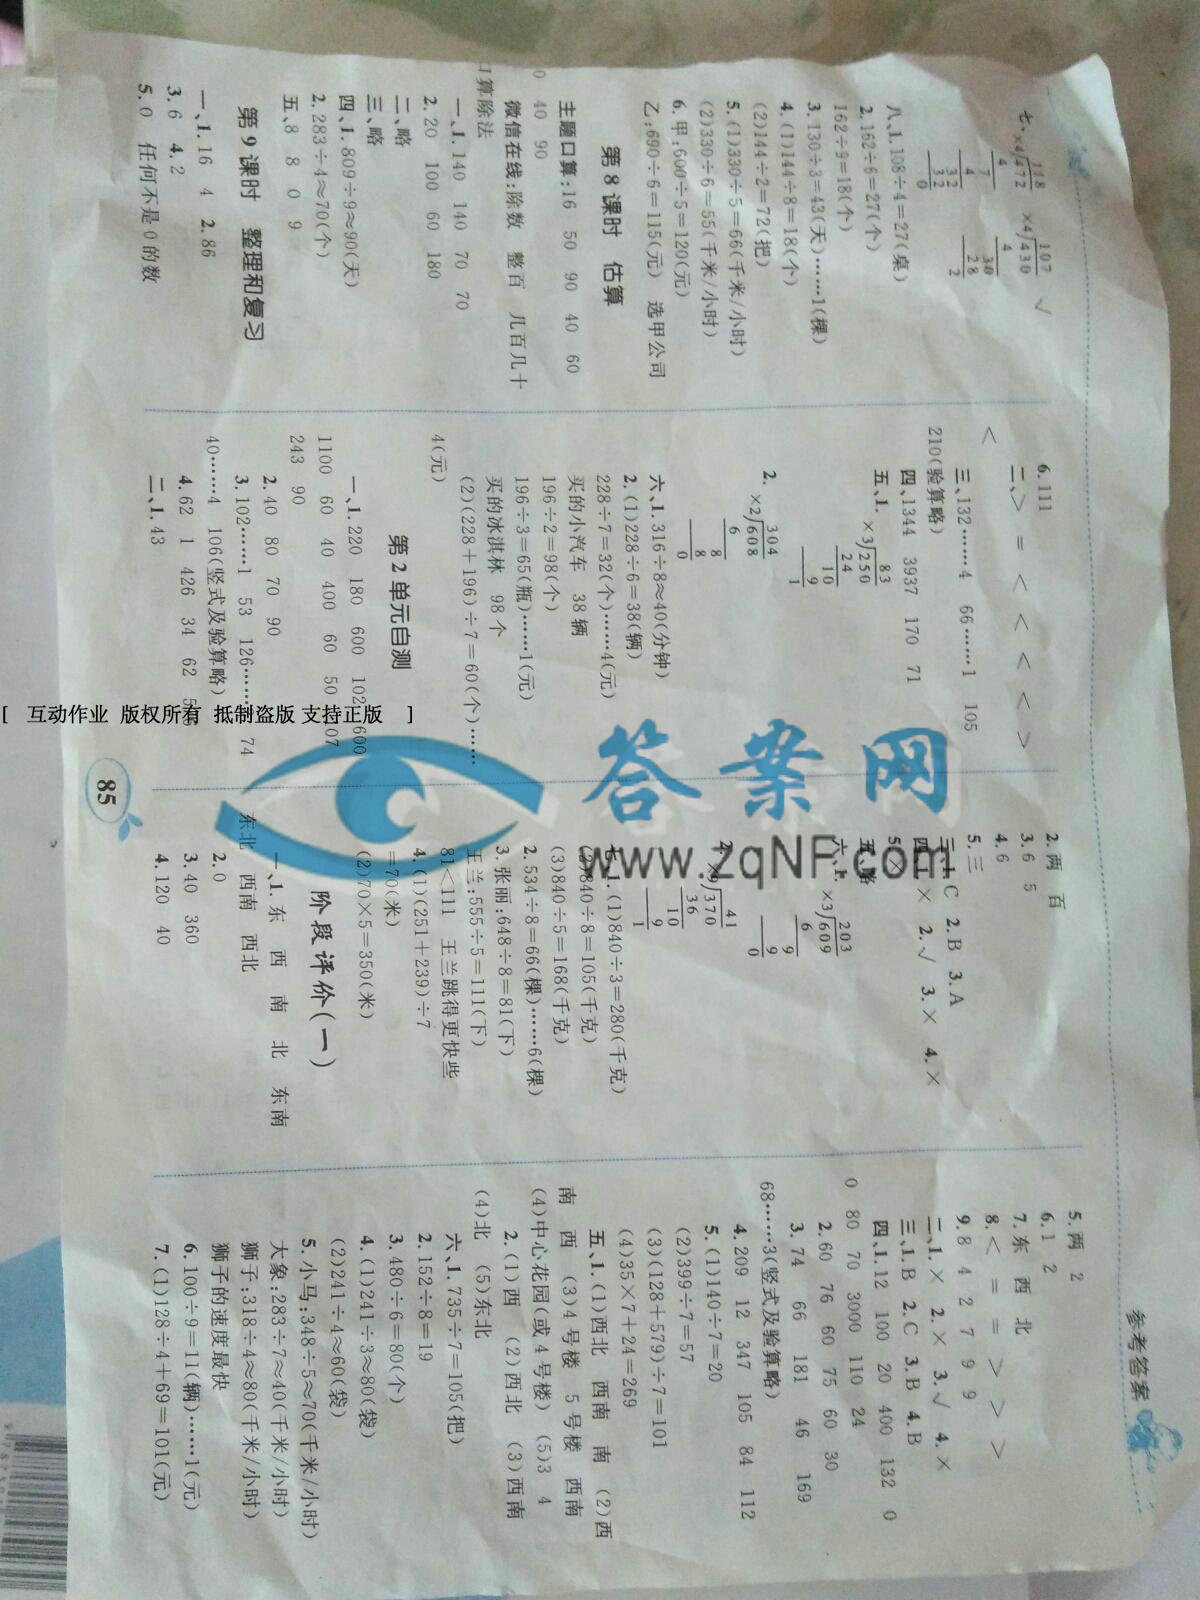 参考答案
七、
118
×4)472
4
7
4
32
32
0
107
×4)430
4
30
28
2
√
八、1.108÷4=27(桌)
2.162÷6=27(个)
162÷9=18(个)
3.130÷3=43(天)……1(棵)
4.(1)144÷8=18(个)
(2)144÷2=72(把)
5.(1)330÷5=66(千米/小时)
(2)330÷6=55(千米/小时)
6.甲:600÷5=120(元)
乙:690÷6=115(元) 选甲公司
第 8 课时 估算
主题口算:16 50 90 40 60
0 40 90
微信在线:除数 整百 几百几十
口算除法
一、1.140 140 70 70
2.20 100 60 180
二、略
三、略
四、1.809÷9≈90(天)
2.283÷4≈70(个)
五、8 8 0 9
第 9 课时 整理和复习
一、1.16 4 2.86
3.6 4.2
5.0 任何不是 0 的数
6.111
二、> = < < < < >
<
三、132……4 66……1 105
210(验算略)
四、1344 3937 170 71
五、1.
83
×3)250
24
10
9
1
2.
304
×2)608
6
8
8
0
六、1.316÷8≈40(分钟)
2.(1)228÷6=38(辆)
228÷7=32(个)……4(元)
买的小汽车 38 辆
196÷2=98(个)
196÷3=65(瓶)……1(元)
买的冰淇淋 98 个
(2)(228+196)÷7=60(个)……
4(元)
第 2 单元自测
一、1.220 180 600 102 600
1100 60 40 400 60 50 107
243 90
2.40 80 70 90
3.102……1 53 126…… 74
40……4 106(竖式及验算略)
4.62 1 426 34 62 5
二、1.43
2.两 百
3.6 5
4.6
5.三
三、1.C 2.B 3.A
四、1.× 2.√ 3.× 4.×
5.×
五、略
六、1.
203
×3)609
6
9
9
0
2.
41
×9)370
36
10
9
1
七、1.(1)840÷3=280(千克)
(2)840÷8=105(千克)
(3)840÷5=168(千克)
2.534÷8=66(棵)……6(棵)
3.张丽:648÷8=81(下)
王兰:555÷5=111(下)
81<111 王兰跳得更快些
4.(1)(251+239)÷7
=70(米)
(2)70×5=350(米)
阶段评价(一)
一、1.东 西 南 北 东南
东北 西南 西北
2.0
3.40 360
4.120 40
5.两 2
6.1 2
7.东 西 北
8.< = = > > >
9.8 4 2 7 9 9
二、1.× 2.× 3.√ 4.×
三、1.B 2.C 3.B 4.B
四、1.12 100 20 400 132 0
0 80 70 3000 110 24
2.60 76 60 75 60 30
3.74 66 181 46 169
68……3(竖式及验算略)
4.209 12 347 105 84 112
5.(1)140÷7=20
(2)399÷7=57
(3)(128+579)÷7=101
(4)35×7+24=269
五、1.(1)西北 西南 南 (2)西
南 西 (3)4 号楼 5 号楼 西南
(4)中心花园(或 4 号楼) (5)3 4
2.(1)西 (2)西北 (3)西南
(4)北 (5)东北
六、1.735÷7=105(把)
2.152÷8=19
3.480÷6=80(个)
4.(1)241÷3≈80(袋)
(2)241÷4≈60(袋)
5.小马:348÷5≈70(千米/小时)
大象:283÷7≈40(千米/小时)
狮子:318÷4≈80(千米/小时)
狮子的速度最快
6.100÷9=11(辆)……1(元)
7.(1)128÷4+69=101(元)
85
[ 互动作业 版权所有 抵制盗版 支持正版 ]
答案网
www.zqNF.com